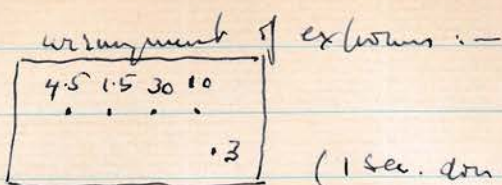 arrangement of exposures :—
4.5 1.5 30 10
.3
(1 sec.